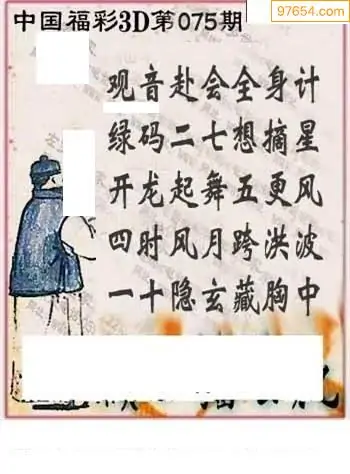 中国福彩3D第075期
97654.com
观音赴会全身计
绿码二七想摘星
开龙起舞五更风
四时风月跨洪波
一十隐玄藏胸中